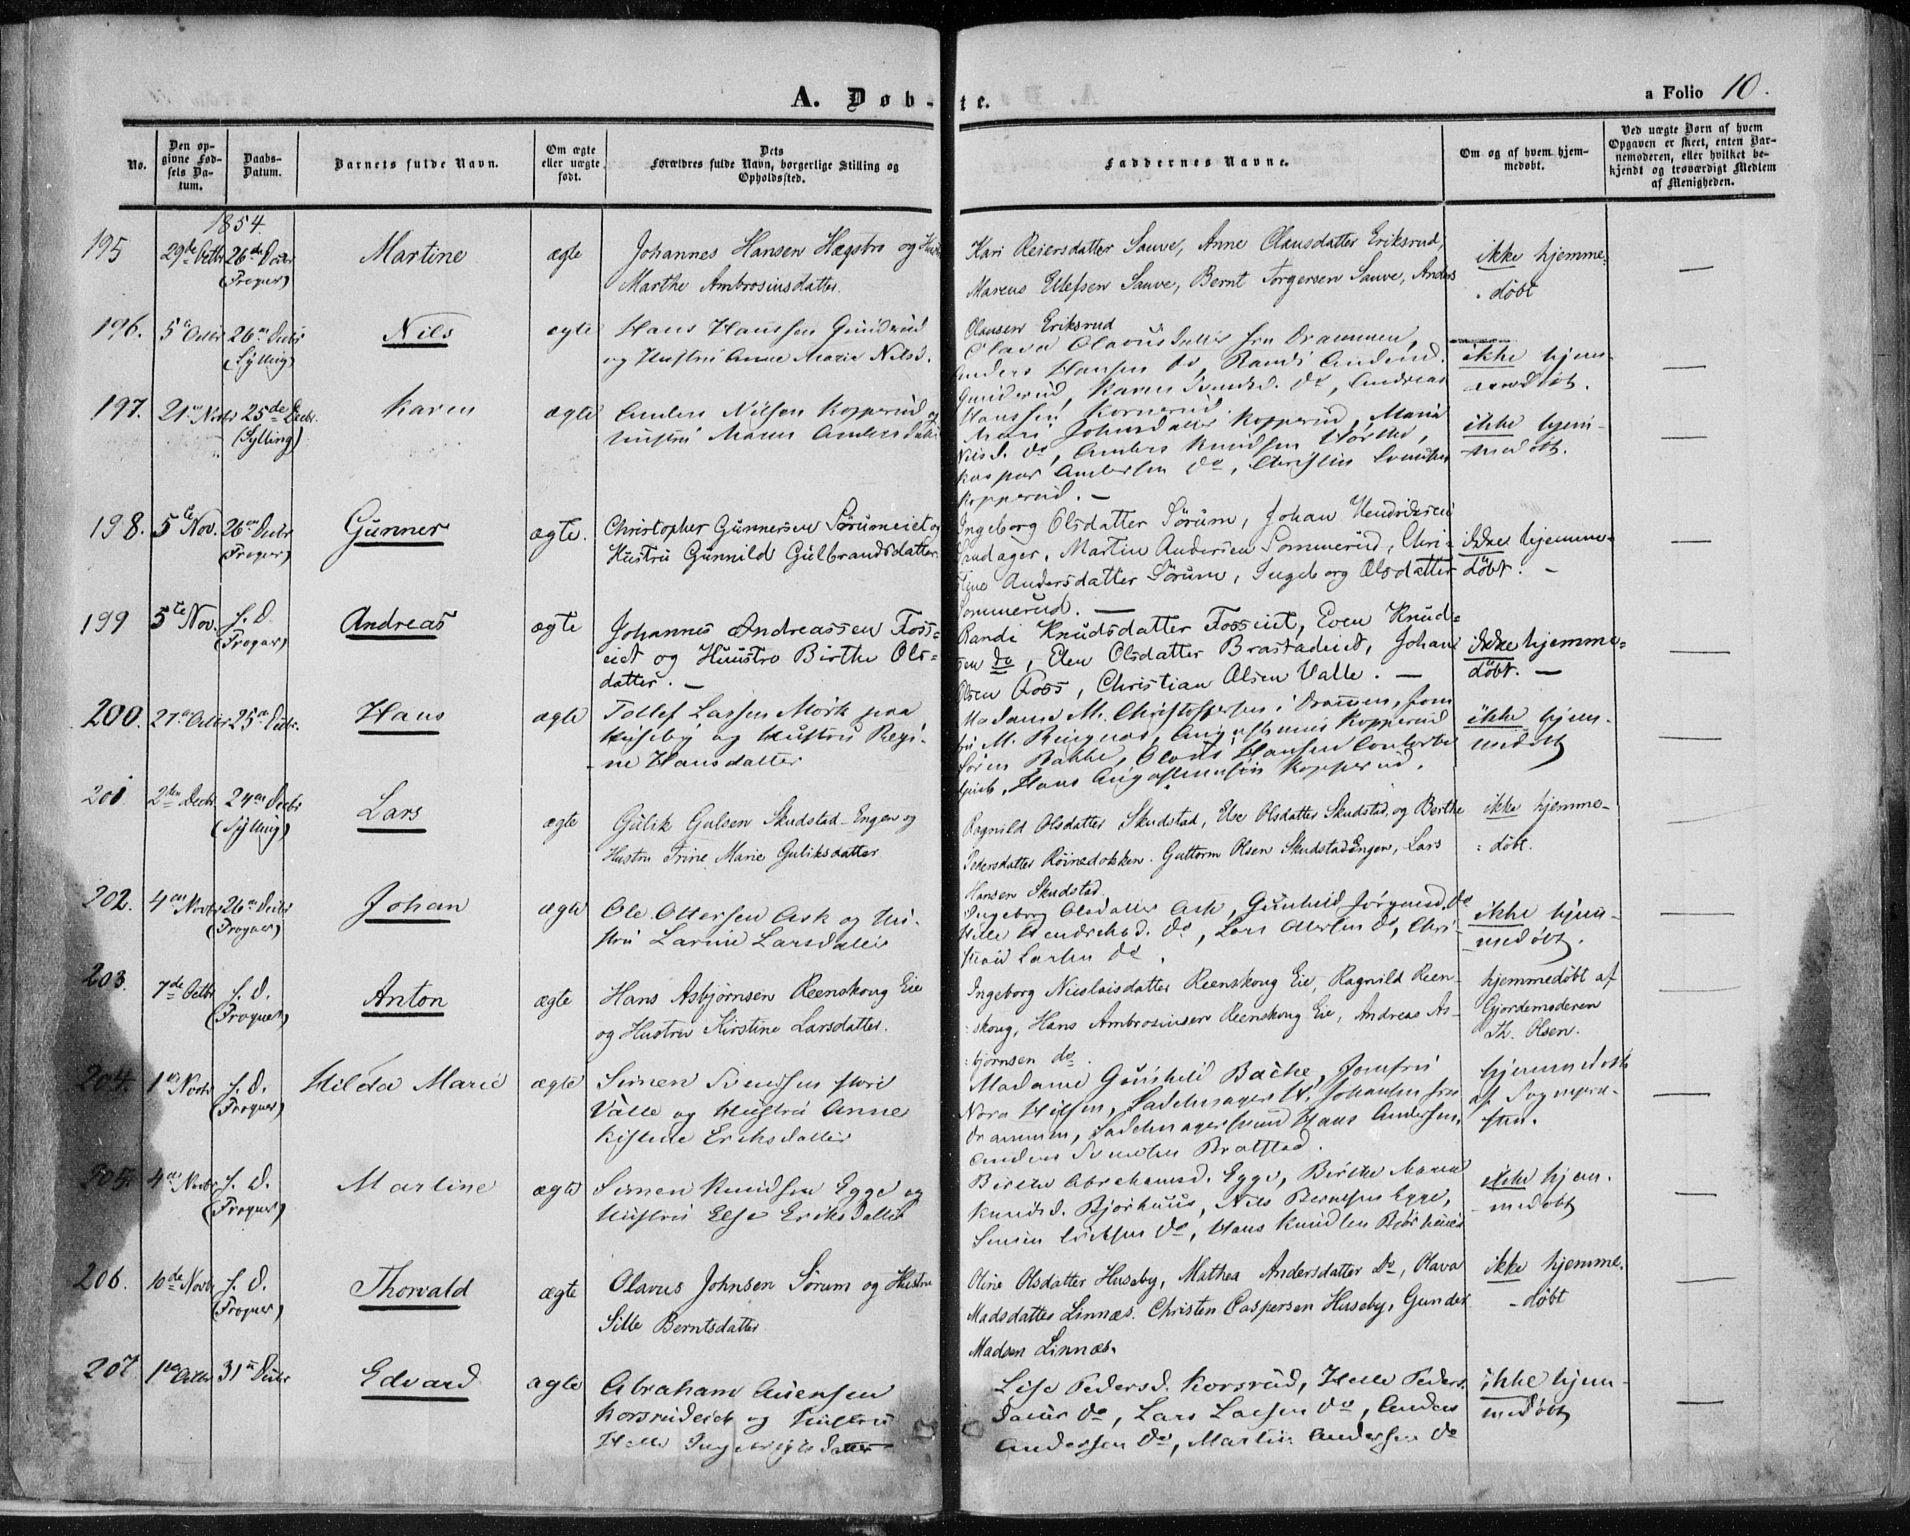 A. Døb-te.
a Folio 10.
No.
Den opgivne Fødsels Datum.
Daabs-Datum.
Barnets fulde Navn.
Om ægte eller uægte født.
Dets Forældres fulde Navn, borgerlige Stilling og Opholdssted.
Faddernes Navne.
Om og af hvem hjemmedøbt.
Ved uægte Børn af hvem Opgaven er skeet, enten Barnemoderen, eller hvilket bekjendt og troværdigt Medlem af Menigheden.
1854.
195 29de Octbr 26de Decbr (Frogner) Martine ægte
Johannes Hansen Hægstro og Hust
Marthe Ambrosiusdatter.
Kari Reiersdatter Sauve, Anne Olausdatter Eriksrud,
Marcus Ellefsen Sauve, Bernt Torgersen Sauve, Anders
Olausen Eriksrud
ikke hjemme-
døbt
196. 5te Octbr 26de Decbr (Sylling) Nils ægte
Hans Hanssen Gunderud
og Hustru Anne Marie Nilsd.
Olava Olavusdatter fra Drammen,
Anders Hansen do, Randi Andersd.
Gunderud, Karen Svendsd. do, Andreas
Hanssen Kornerud.
ikke hjem-
medøbt.
197. 21de Novbr 25de Decbr. (Sylling) Karen ægte
Anders Nilsen Kopperud og
Hustru Maren Andersdatter
Mari Johnsdatter Kopperud, Maria
Nilsd. do, Anders Knudsen Hørthe,
Kaspar Andersen do, Christen Svendsen
Kopperud. —
ikke hjem-
medøbt.
198. 5te Nov. 26de Decbr (Frogner) Gunner ægte.
Christopher Gunnersen Sørumeiet og
Hustru Gunnild Gulbrandsdatter.
Ingeborg Olsdatter Sørum, Johan Hendriksen
Sandager, Martin Andersen Sommerud, Chri-
stine Andersdatter Sørum, Ingeborg Olsdatter
Sommerud. —
ikke hjemme-
døbt. —
199 5te Nov. s. D. (Frogner) Andreas ægte
Johannes Andreassen Foss-
eiet og Huustro Birthe Ols-
datter. —
Randi Knudsdatter Fosseiet, Even Knud-
sen do, Elen Olsdatter Brastadeiet, Johan
Olsen Foss, Christian Olsen Valle. —
ikke hjemme-
døbt. —
200. 27de Octbr 25de Decbr. Hans ægte
Tollef Larsen Mørk paa
Huseby og Hustru Regi-
ne Hansdatter
Madame M. Christophersen i Drammen, Jom
fru M. Ringnæs, Kopperud
Søren Bakke, Hansen
Hans Kopperud.
ikke hjem-
medøbt
201 2den Decbr 24de Decbr (Sylling) Lars ægte
Gulik Gulsen Skudstad-Engen og
Hustru Trine Marie Guliksdatter
Ragnild Olsdatter Skudstad, Else Olsdatter Skudstad, og Berthe
Pedersdatter Røinedokken. Guttorm Olsen Skudstadengen, Lars
Hansen Skudstad.
ikke hjemme-
døbt.
202. 4de Novbr 26de Decbr (Frogner) Johan ægte
Ole Ottersen Ask og Hu-
stru Larine Larsdatter
Ingeborg Olsdatter Ask, Gunhild Jørgensd. do
Helle do, Lars Ottersen do, Chri-
stian Larsen do.
ikke hjem-
medøbt.
203. 7de Octbr s. D. (Frogner) Anton ægte
Hans Asbjørnsen Reenskoug Eie
og Hustru Kirstine Larsdatter.
Ingeborg Nicolaisdatter Reenskoug Eie, Ragnild Reen-
skoug, Hans Ambrosiusen Reenskoug Eie, Andreas As-
bjørnsen do.
hjemmedøbt af
Gjordemoderen
Th. Olsen.
204. 1de Novbr s. D. (Frogner) Hilda Marie ægte
Simen Svendsen store
Valle og Hustru Anne
Kistine Eriksdatter
Madame Gunhild Bache, Jomfru
Nora Nilsen, Sadelmager H. Johansen fra
Drammen, Sadelmagersvend Hans Andersen,
Anders Svendsen Bratstad.
hjemmedøbt
af Sognepræ-
sten.
205. 4de Novbr s. D. (Frogner) Martine ægte
Simen Knudsen Egge og
Hustru Else Eriksdatter
Birthe Abrahamsd. Egge, Birthe Maria
Knudsd. Bjørhuus, Nils Berntsen Egge,
Simen Eriksen do, Hans Knudsen Bjørhuus
ikke hjem-
medøbt
206. 10de Novbr s. D. (Frogner) Thorvald ægte
Olavus Johnsen Sørum og Hustru
Sille Berntsdatter
Oline Olsdatter Huseby, Mathea Andersdatter do, Olava
Madsdatter Linnæs. Christen Caspersen Huseby, Gunder
Madsen Linnæs.
ikke hjemme-
døbt
207 1de Octbr 31te Decbr Edvard ægte
Abraham Auensen
Korsrudeiet og Hustru
Helle Ingebrigtsdatter
Lise Pedersd. Korsrud, Helle Peders-
datter do, Lars Larsen do, Anders
Andersen do, Martin Andersen do
ikke hjem-
medøbt